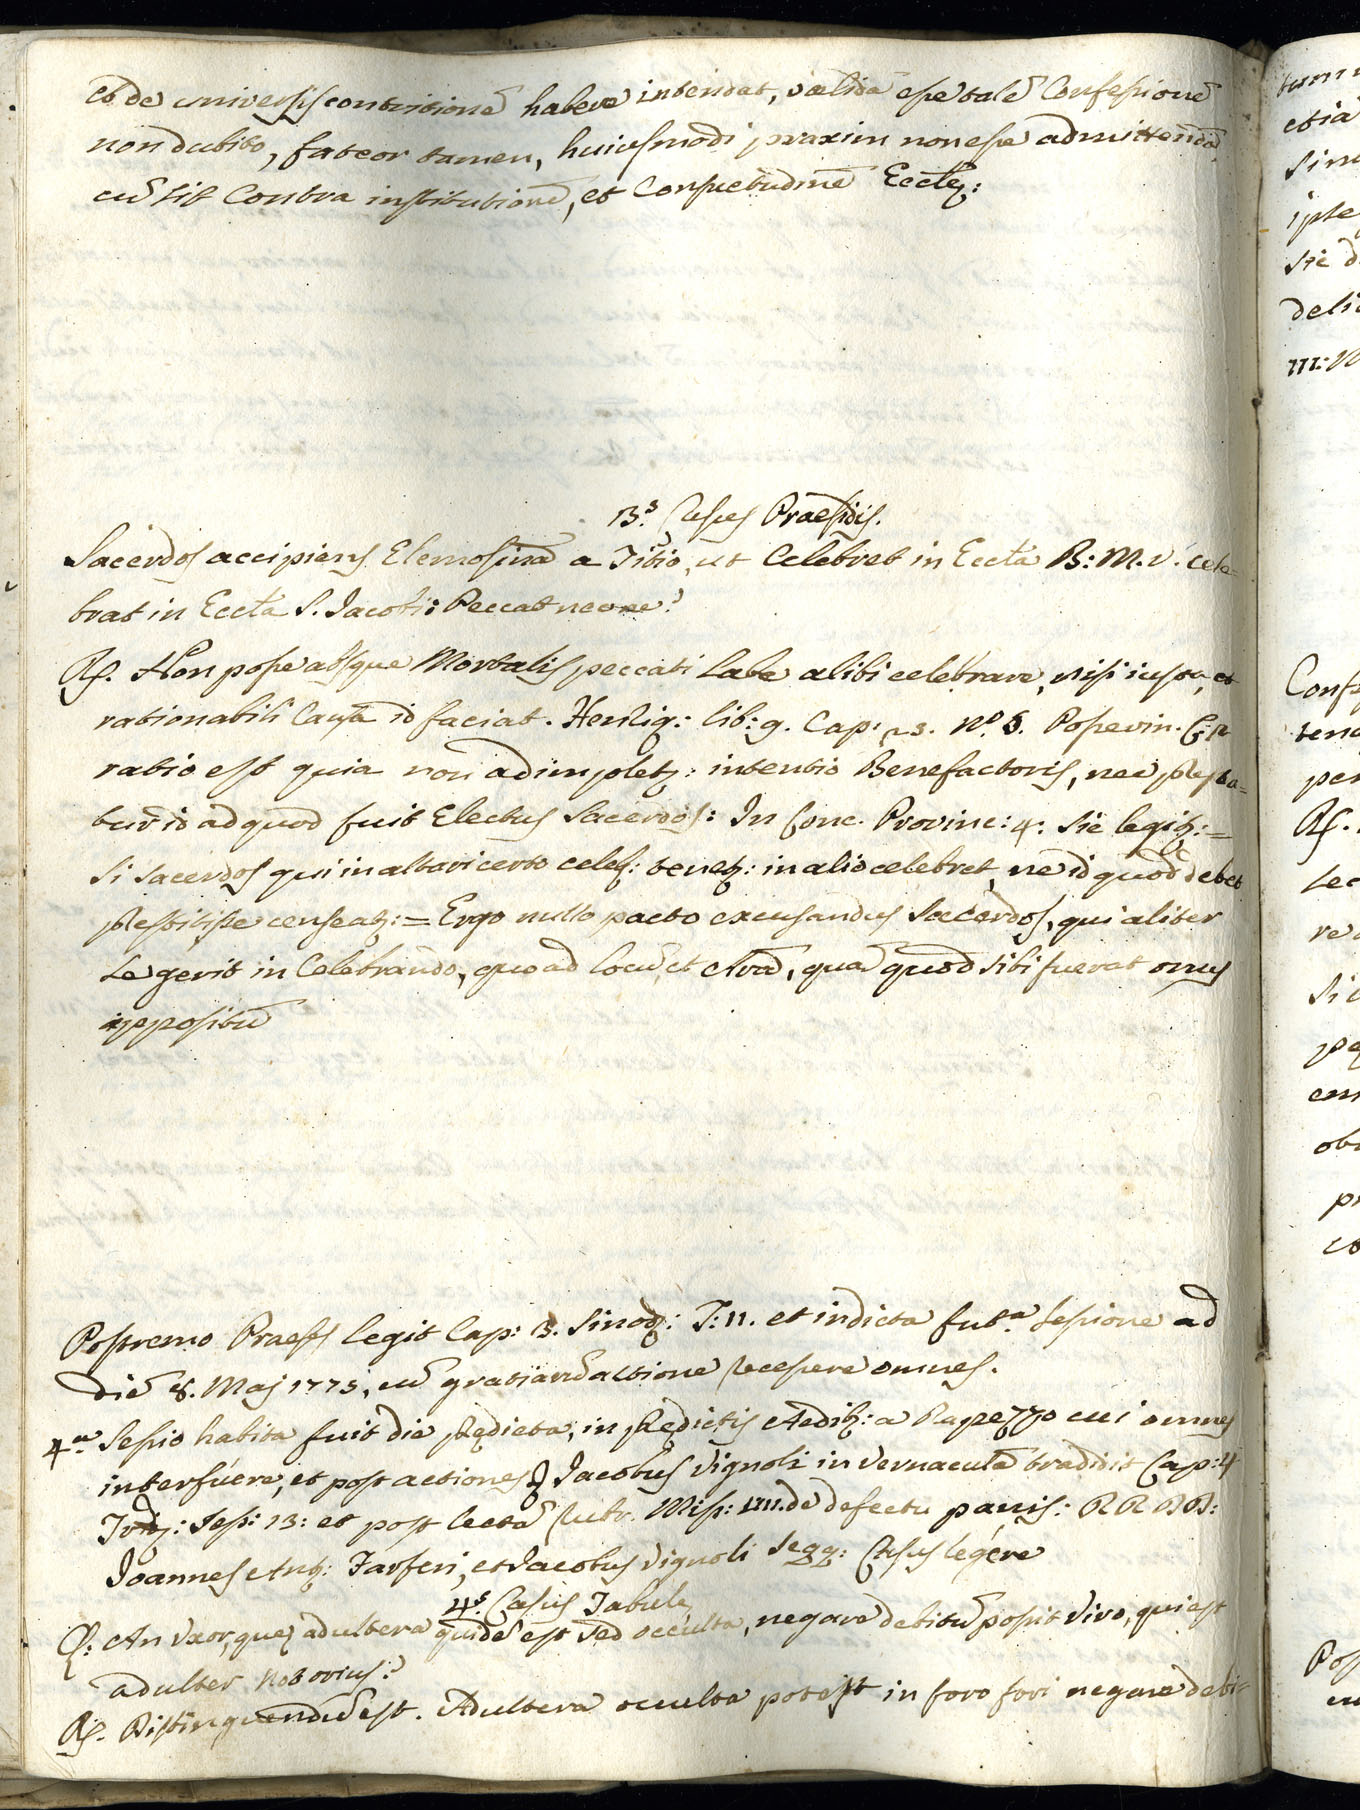 et de universis contritionē habere intendat, validā esse talē Confessionē
non dubito, fateor tamen, huiusmodi praxim non esse admittendā,
cū sit Contra institutionē, et Consuetudinē Eccłę:
Casus Praesidis.
Sacerdos accipiens Elemosinā a Titio, ut Celebret in Eccła B: M. V. cele=
brat in Eccła S. Jacobi: Peccat necne?
R. Non posse absque Mortalis peccati Labe alibi celebrare, nisi iusta, et
rationabili Causa id faciat. Henriq: lib: 9. Cap: 23. N.º Possevin.
ratio est quia non adimpletꝫ: intentio Benefactoris, nec pręsta=
tur id ad quod fuit Electus Sacerdos: In Conc. Provinc: 4: sic legitꝫ: =
si sacerdos qui in altari certo celeb: tenetꝫ: in alio celebret, ne id quod debet
pręstitisse censeatꝫ: = Ergo nullo pacto excusandus Sacerdos, qui aliter
se gerit in Celebrando, quoad locū, et Arā, quā quod sibi fuerat onus
impositū
Postremo Praeses legit Cap: 3. Sinod: T: 11. et indicta fut.ª sessione ad
diē 8. Maj 1775, cū gratiarū actione recessere omnes.
4.ª Sessio habita fuit die prędicta, in prędictis Aedibꝫ: a Rapezzo cui omnes
interfuere, et post actiones Jacobus Vignoli in vernaculā tradidit Cap: 4
Trid: Sess: 13: et post lectā Rubr. Miss: IIII. de defectu panis: RR DD:
Joannes Antꝫ: Tarferi, et Jacobus Vignoli seqq: Casus legére
4.ˢ Casus Tabulę
Q: An Uxor, quę adultera quidē est sed occulta, negare debitū possit Viro, qui est
adulter notorius?
R. Distinguendū est. Adultera occulta potest in foro fori negare debi=